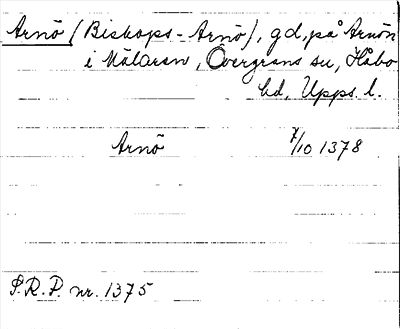 Arnö (Biskops-Arnö), gd, på Arnön
i Mälaren, Övergrans sn, Håbo
hd, Upps. l.
Arnö 7/10 1378
S.R.P. nr. 1375